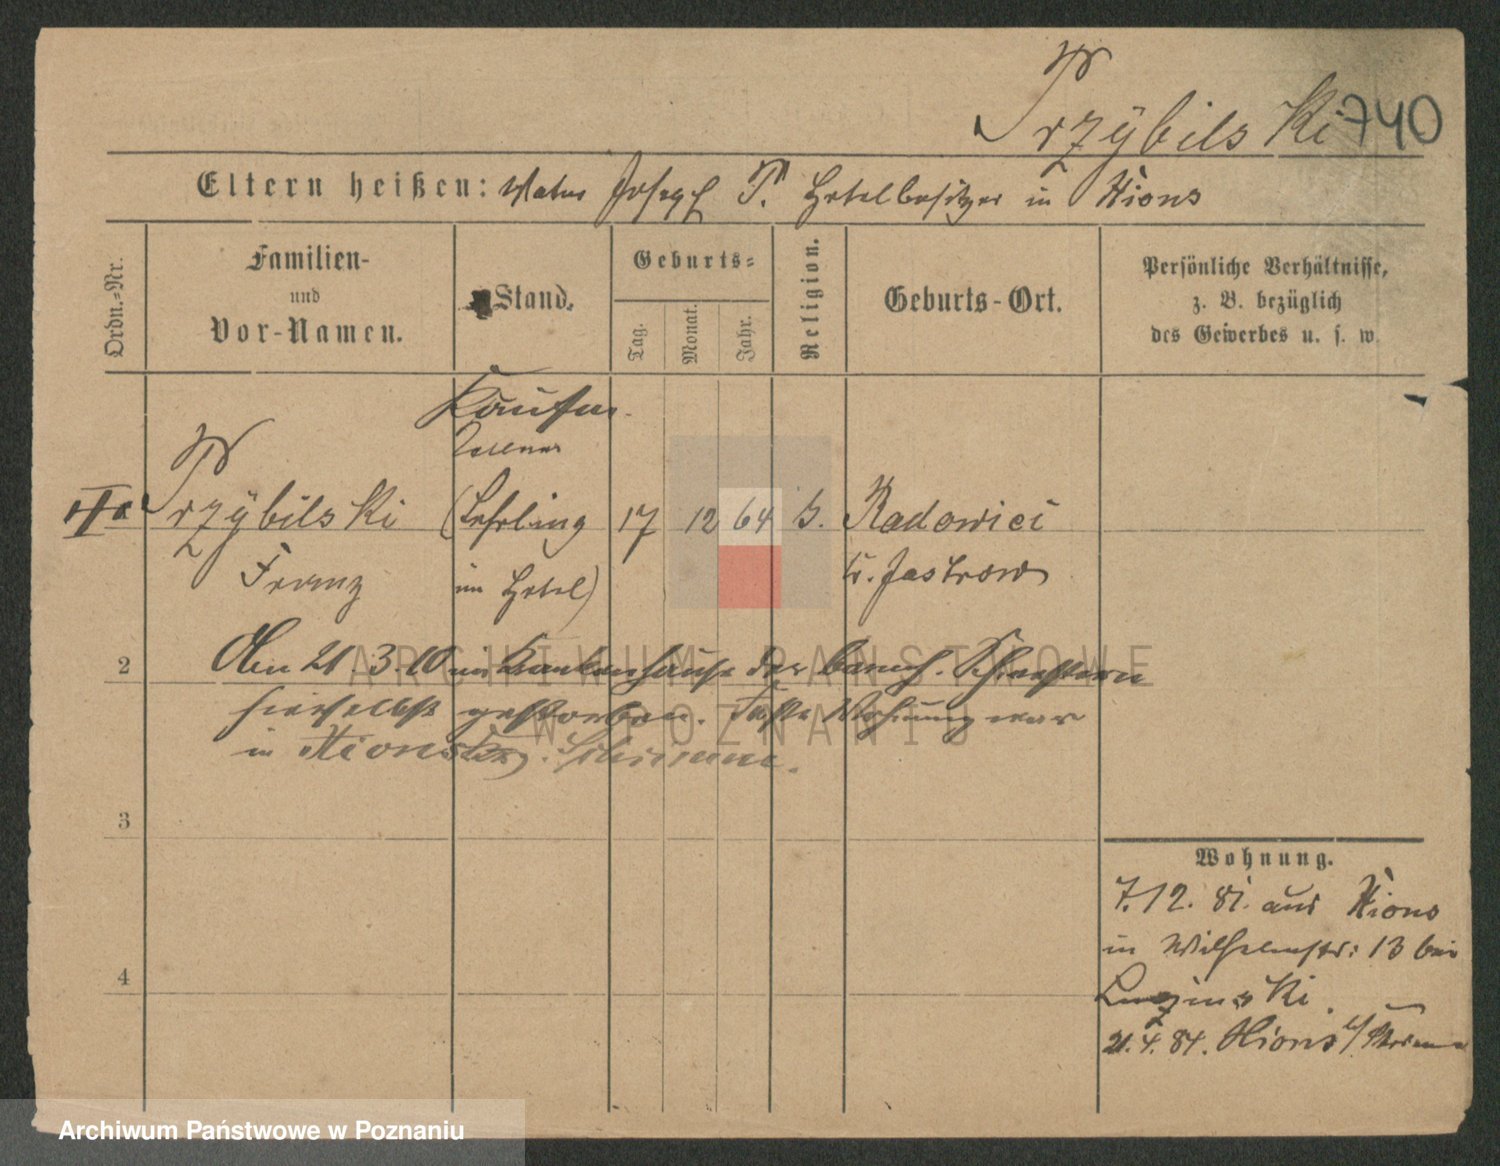 Przÿbilski 740
Eltern heißen: Vater Joseph P. Hotelbesitzer in Xions
Ordn.=Nr.
Familien-
und
Vor-Namen.
Stand.
Geburts=
Tag.
Monat.
Jahr.
Religion.
Geburts-Ort.
Persönliche Verhältnisse,
z. B. bezüglich
des Gewerbes u. s. w.
Kaufm.
Przÿbilski (Lehrling 17 12 64 Radowici
Franz im Hotel) Jastrow
2
Den 21 3 im Krankenhause der barmh. Schwestern
hierselbst gestorben. Feste Wohnung war
in Xions Schrimm.
3
4
Wohnung.
7.12. 81. aus Xions
in Wilhelmstr: 13 bei
21. 4. 84. Xions
ARCHIWUM PAŃSTWOWE
W POZNANIU
Archiwum Państwowe w Poznaniu